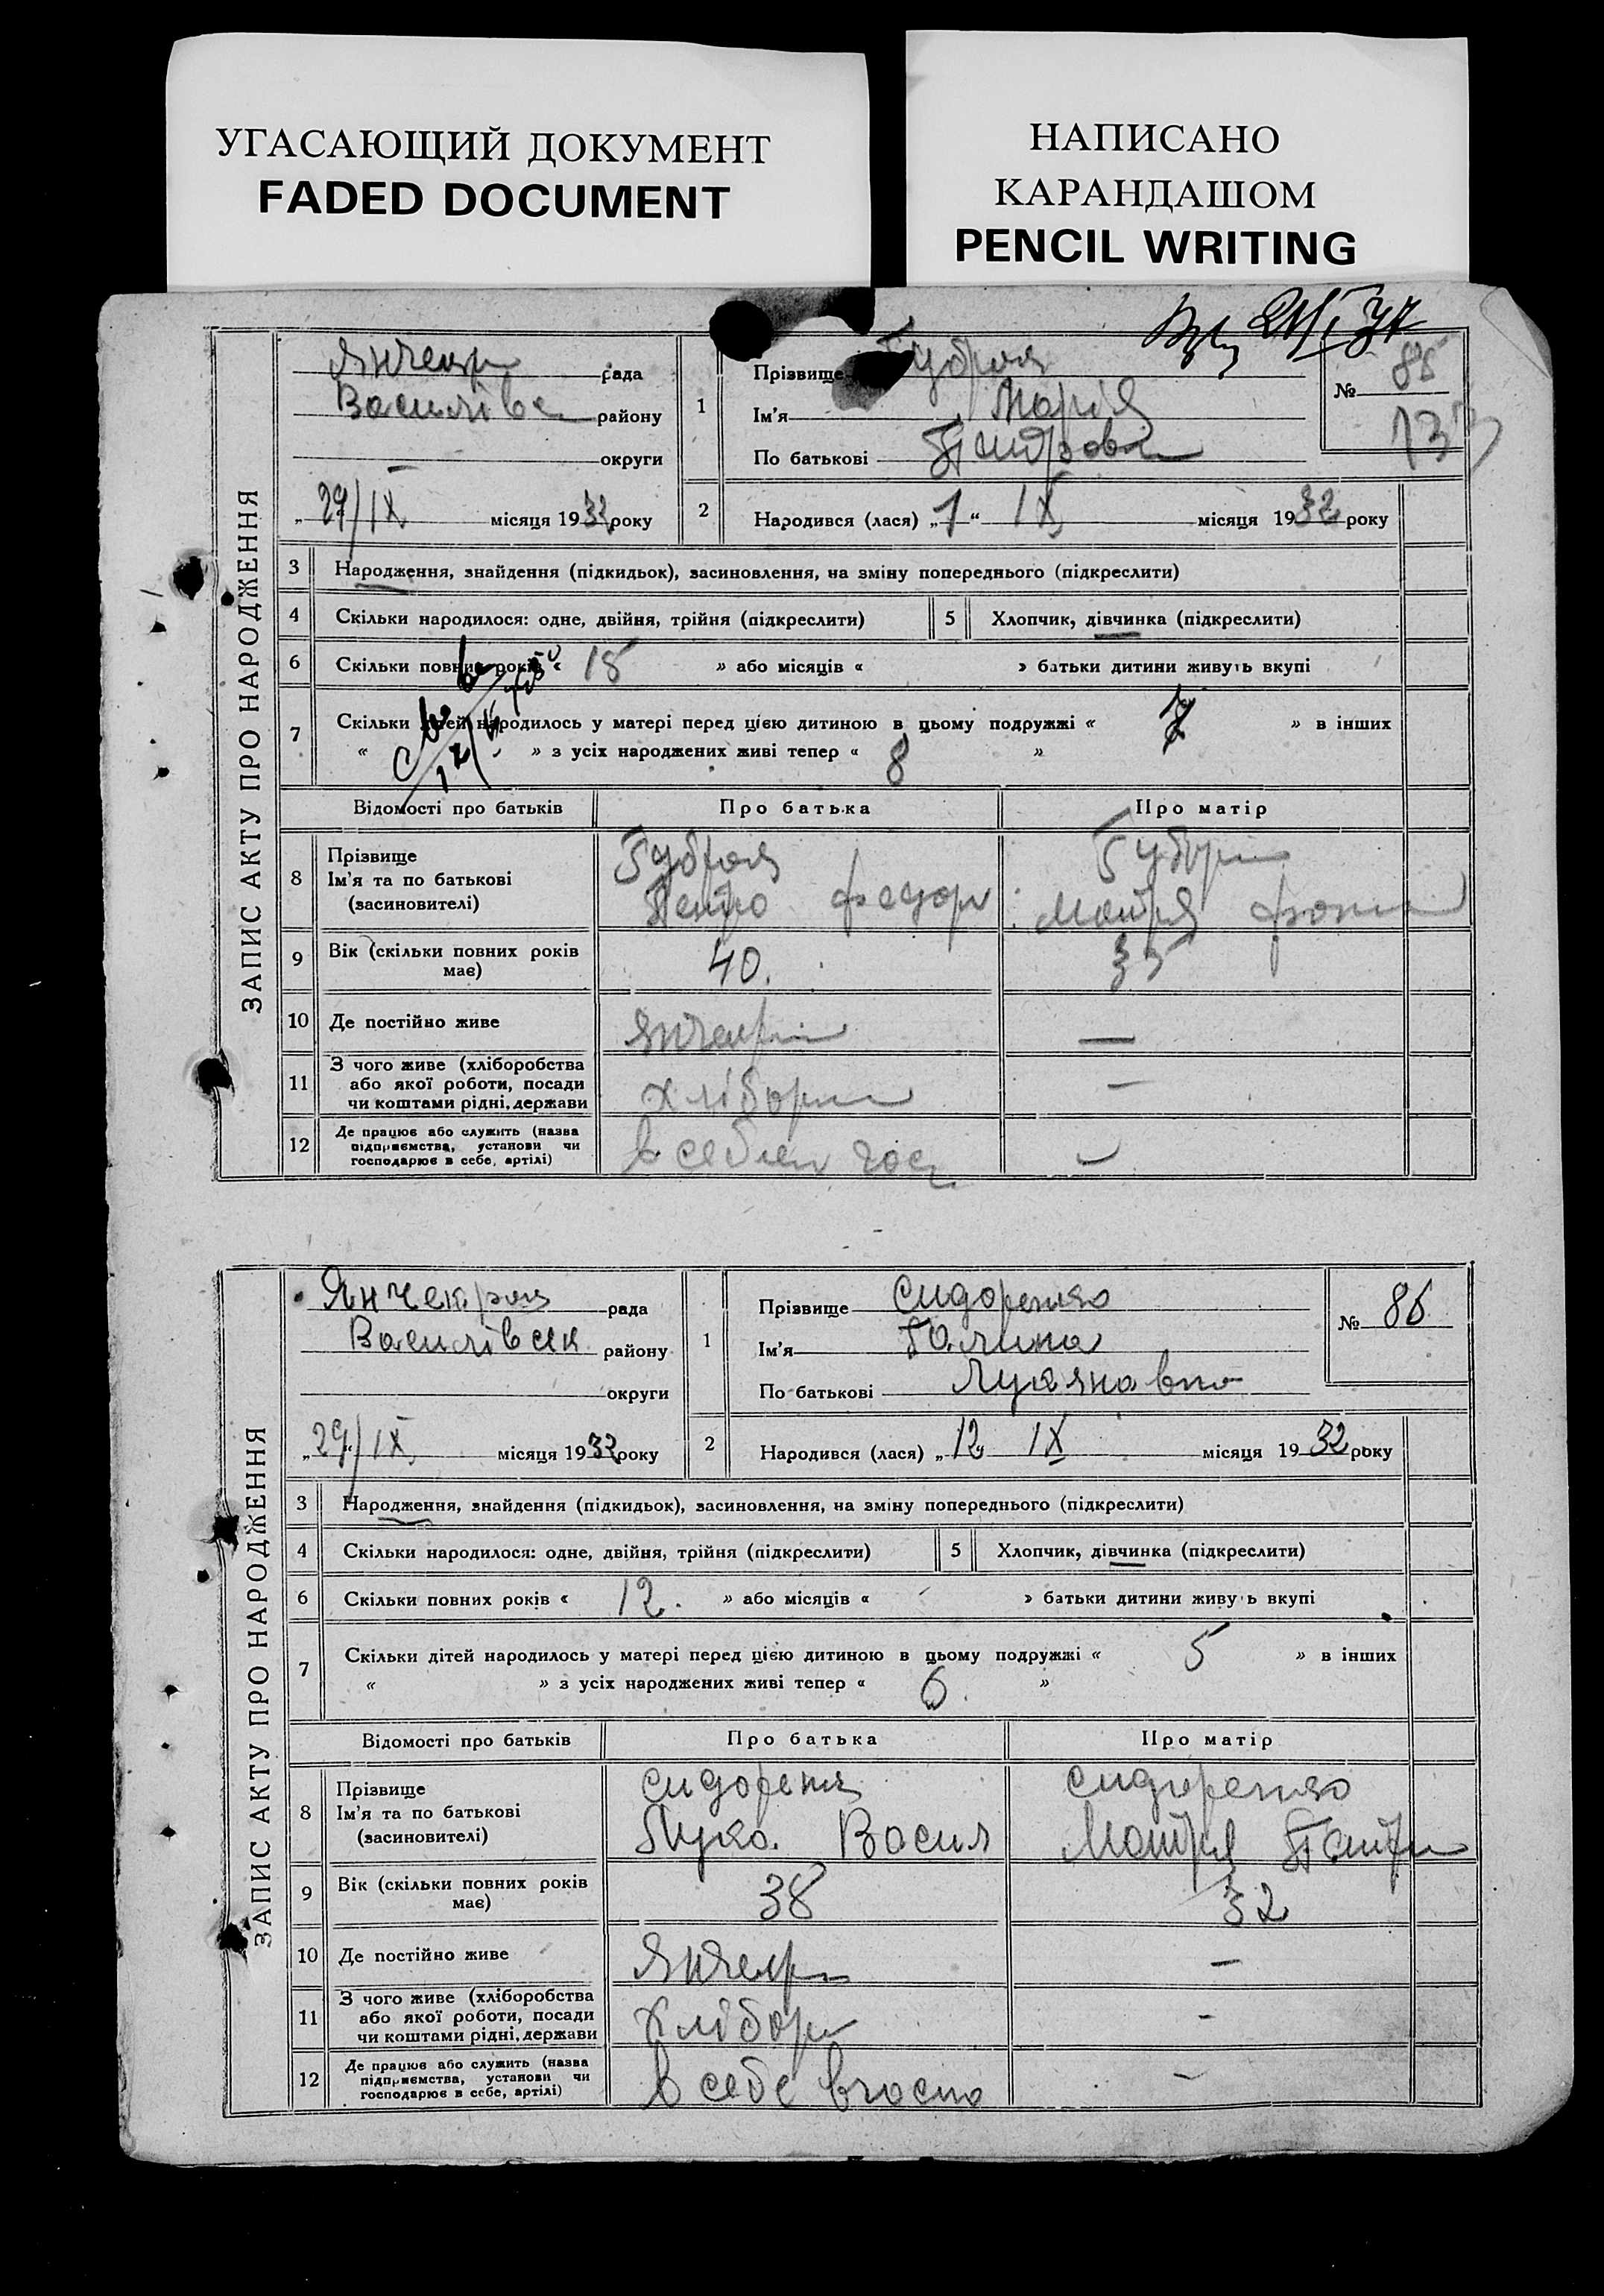 УГАСАЮЩИЙ ДОКУМЕНТ
FADED DOCUMENT
НАПИСАНО
КАРАНДАШОМ
PENCIL WRITING
ЗАПИС АКТУ ПРО НАРОДЖЕННЯ
Янчекр рада
Василівс району
округи
„29/IX місяця 1932 року
1
Прізвище
Ім'я Марія
По батькові Петровн
№ 85
133
2 Народився (лася) „1“ IX місяця 1932 року
3 Народження, знайдення (підкидьок), засиновлення, на зміну попереднього (підкреслити)
4 Скільки народилося: одне, двійня, трійня (підкреслити)
5 Хлопчик, дівчинка (підкреслити)
6 Скільки повних років « 15 » або місяців « » батьки дитини живуть вкупі
7 Скільки дітей народилось у матері перед цією дитиною в цьому подружжі « 7 » в інших
« » з усіх народжених живі тепер « 8 »
Відомості про батьків Про батька Про матір
8 Прізвище
Ім'я та по батькові
(засиновителі)
Петро Федор
Мотря
9 Вік (скільки повних років
має)
40. 35
10 Де постійно живе Янчекр —
11 З чого живе (хліборобства
або якої роботи, посади
чи коштами рідні, держави
Хлібор —
12 Де працює або служить (назва
підприємства, установи чи
господарює в себе, артілі)
в себе —
ЗАПИС АКТУ ПРО НАРОДЖЕННЯ
Янчекр рада
Василівськ району
округи
„29/IX місяця 1932 року
1
Прізвище Сидоренко
Ім'я Галина
По батькові Лукяновна
№ 86
2 Народився (лася) „12 IX місяця 1932 року
3 Народження, знайдення (підкидьок), засиновлення, на зміну попереднього (підкреслити)
4 Скільки народилося: одне, двійня, трійня (підкреслити)
5 Хлопчик, дівчинка (підкреслити)
6 Скільки повних років « 12. » або місяців « » батьки дитини живуть вкупі
7 Скільки дітей народилось у матері перед цією дитиною в цьому подружжі « 5 » в інших
« » з усіх народжених живі тепер « 6. »
Відомості про батьків Про батька Про матір
8 Прізвище
Ім'я та по батькові
(засиновителі)
Сидоренк
Лука. Васил
Сидоренко
Мотря Петр
9 Вік (скільки повних років
має)
38 32
10 Де постійно живе Янчекр —
11 З чого живе (хліборобства
або якої роботи, посади
чи коштами рідні, держави
Хлібор -
12 Де працює або служить (назва
підприємства, установи чи
господарює в себе, артілі)
в себе -